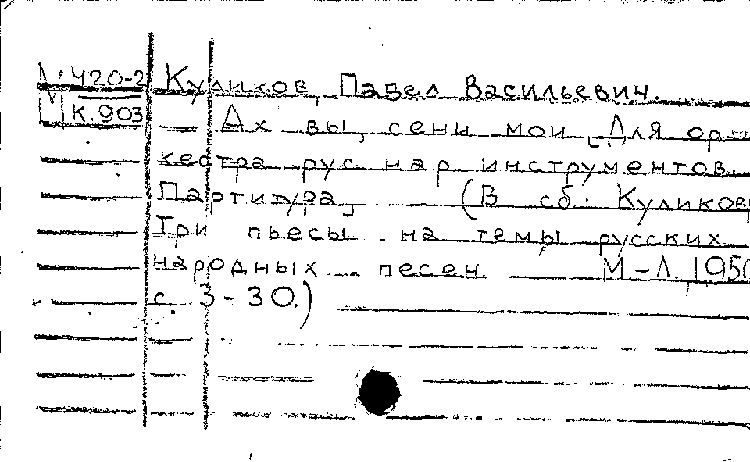 М 420-2 Куликов, Павел Васильевич.
К.903 Ах вы, сени мои [Для ор-
кестра рус нар инструментов.
Партитура] (В сб: Куликов
Три пьесы на темы русских
народных песен М-Л. 1950
с 3-30.)